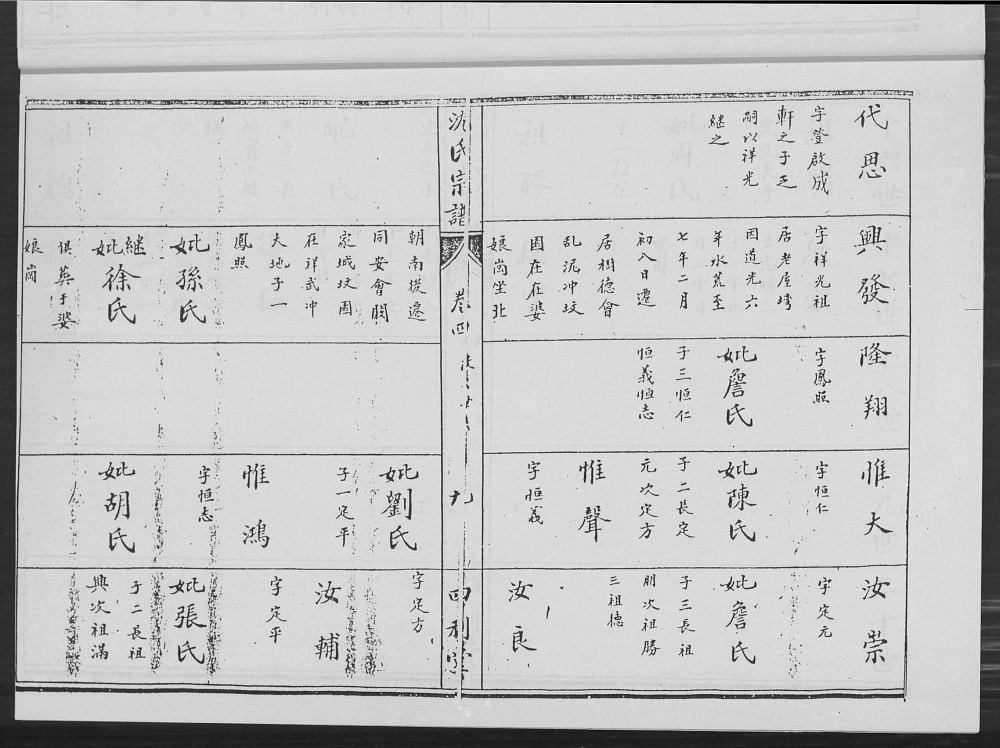 代思
字登啟成
軒之子乏
嗣以祥光
繼之
興發
字祥光祖
居老屋塆
因道光六
年水荒至
七年二月
初八日遷
居樹德會
乱泥冲坟
囯在在娑
娘崗坐北
朝南後遷
同安會関
家城坟囯
在祥武冲
大地子一
鳳照
妣孫氏
継妣徐氏
俱英于婆
娘崗
隆翔
字鳳照
妣詹氏
子三恒仁
恒義恒志
惟大
字恒仁
妣陳氏
子二長定
元次定方
惟聲
字恒義
妣劉氏
子一定平
惟鴻
字恒志
妣胡氏
汝崇
字定元
妣詹氏
子三長祖
朋次祖勝
三祖德
汝良
字定方
汝輔
字定平
妣張氏
子二長祖
興次祖滿
沈氏宗譜
卷四
九
四利堂